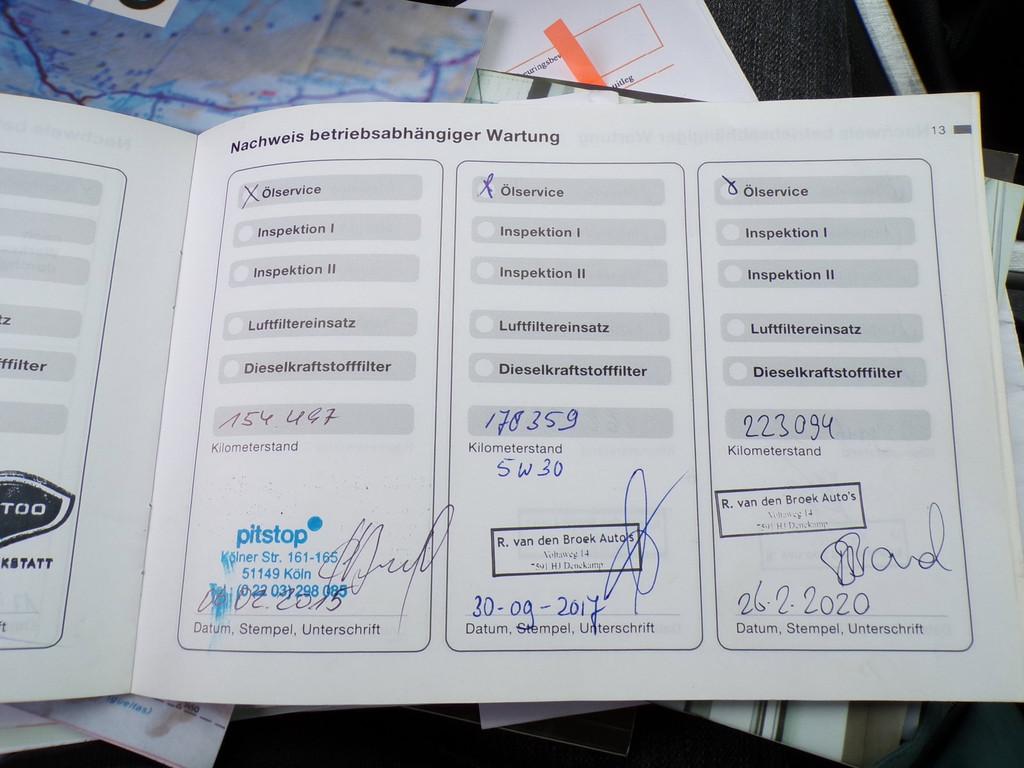 Nachweis betriebsabhängiger Wartung
13
Ölservice
Inspektion I
Inspektion II
Luftfiltereinsatz
Dieselkraftstofffilter
154.497
Kilometerstand
pitstop
Kölner Str. 161-165
51149 Köln
Tel.: (0 22 03) 298 085
02.2015
Datum, Stempel, Unterschrift
Ölservice
Inspektion I
Inspektion II
Luftfiltereinsatz
Dieselkraftstofffilter
178359
Kilometerstand
5W30
R. van den Broek Auto's
Voltaweg 14
7591 HJ Denekamp
30-09-2017
Datum, Stempel, Unterschrift
Ölservice
Inspektion I
Inspektion II
Luftfiltereinsatz
Dieselkraftstofffilter
223094
Kilometerstand
R. van den Broek Auto's
Voltaweg 14
7591 HJ Denekamp
26.2.2020
Datum, Stempel, Unterschrift
z
ffilter
TOO
KSTATT
ft